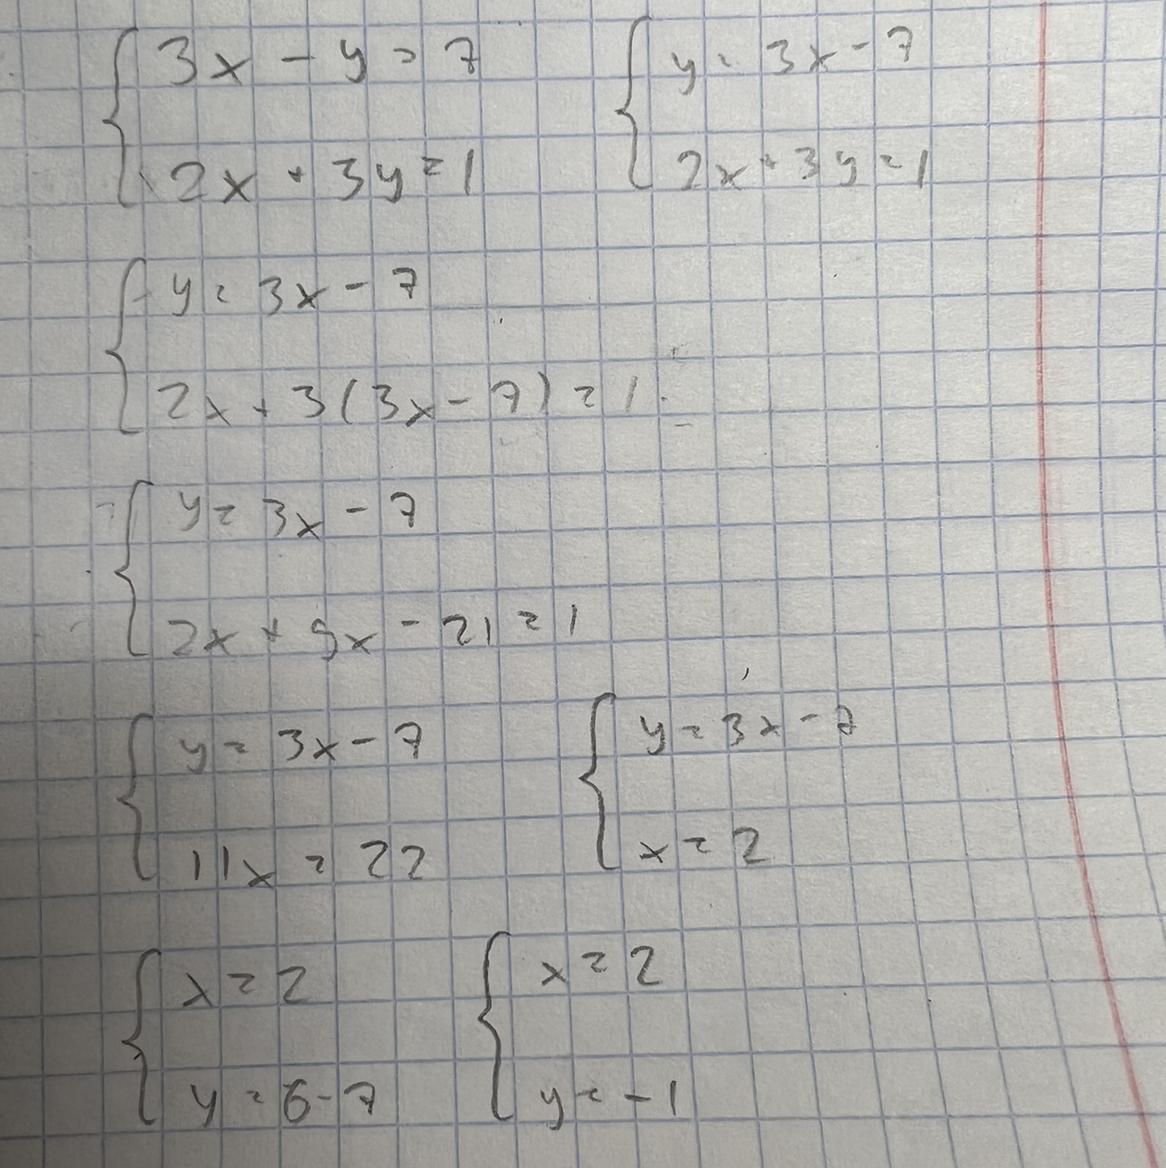 3x - y = 7
2x + 3y = 1
y = 3x - 7
2x + 3y = 1
y = 3x - 7
2x + 3(3x - 7) = 1
y = 3x - 7
2x + 9x - 21 = 1
y = 3x - 7
11x = 22
y = 3x - 7
x = 2
x = 2
y = 6 - 7
x = 2
y = -1